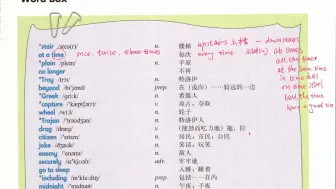 word box
*stair /steə(r)/ n. 楼梯 upstairs 上楼 — downstairs
at a time 每次 once, twice, three times every time at times
*plain /pleɪn/ n. 平原 all the time
no longer 不再 at the same time
*Troy /trɔɪ/ n. 特洛伊 in time
beyond /bɪˈjɒnd/ prep. 在（或向）……较远的一边 on time
*Greek /ɡriːk/ n. 希腊人
*capture /ˈkæptʃə(r)/ v. 攻占；夺取 have a good time
wheel /wiːl/ n. 轮子
*Trojan /ˈtrəʊdʒən/ n. 特洛伊人
drag /dræɡ/ v. （使劲而吃力地）拖，拉
citizen /ˈsɪtɪzn/ n. 居民；市民；公民
joke /dʒəʊk/ n. 笑话；玩笑
enemy /ˈenəmi/ n. 敌人
securely /sɪˈkjʊəli/ adv. 牢牢地
go to sleep 入睡；睡着
*including /ɪnˈkluːdɪŋ/ prep. 包括……在内
midnight /ˈmɪdnaɪt/ n. 午夜；子夜